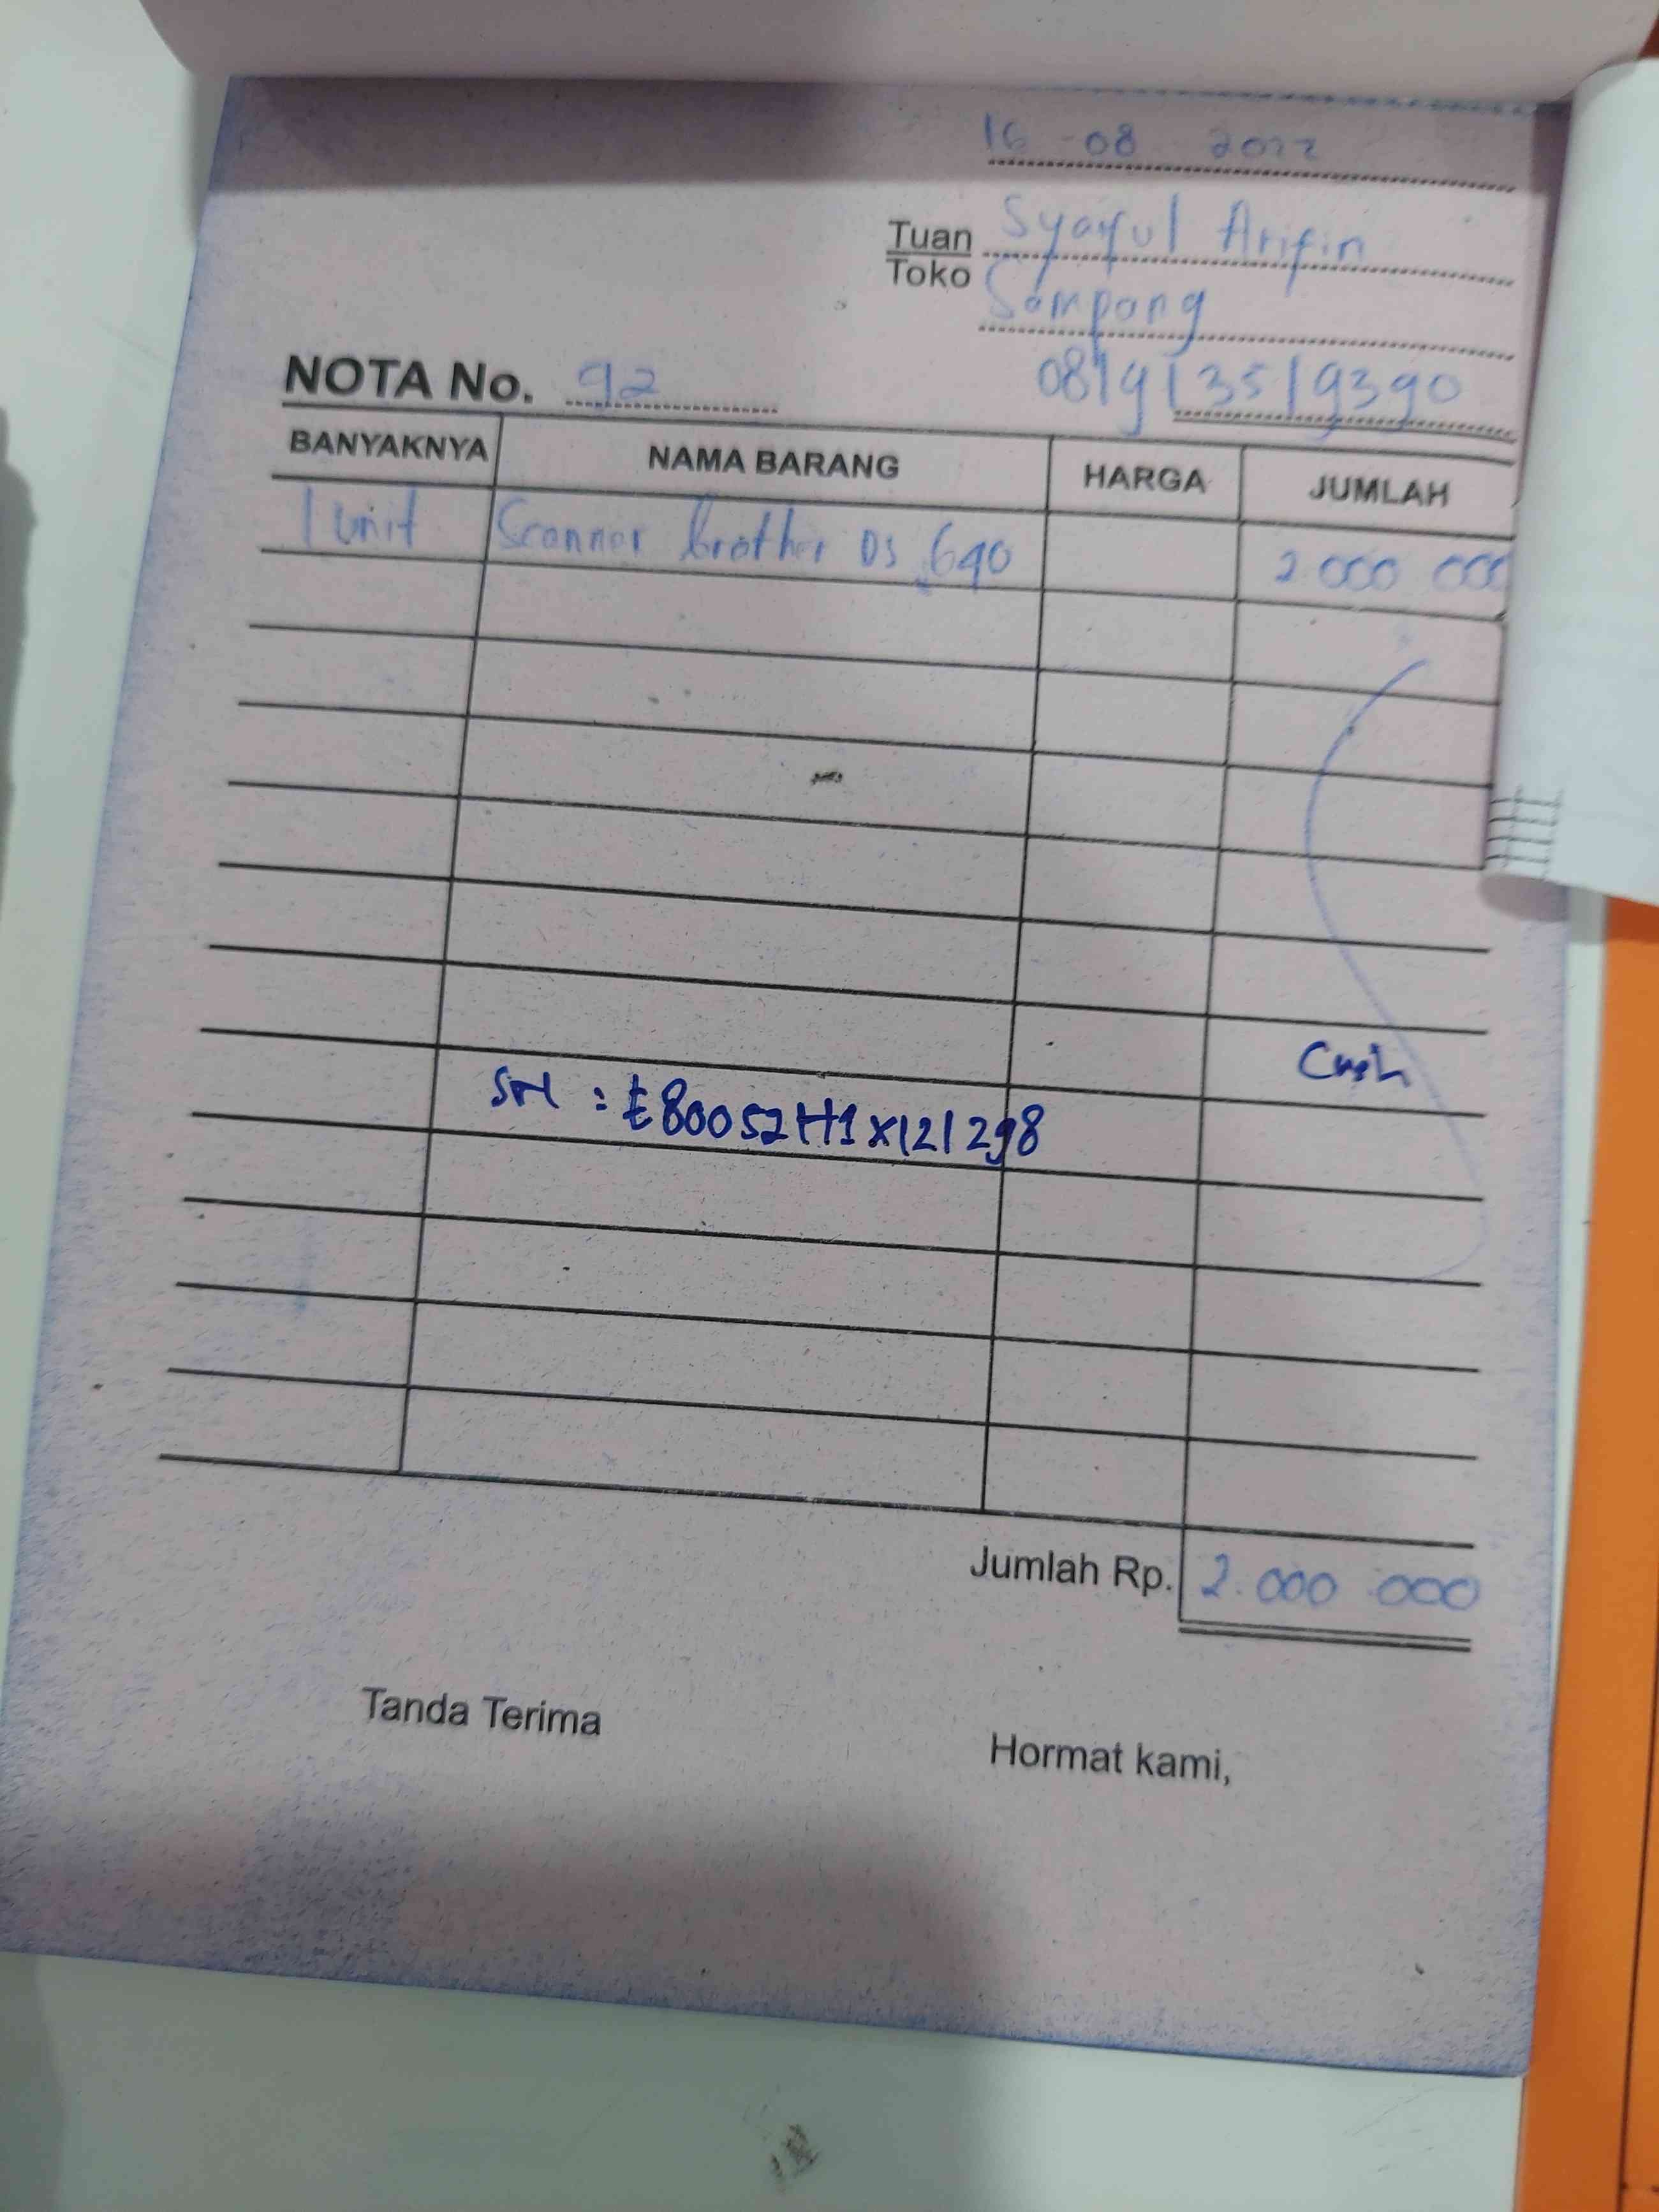 16 -08 2022
Tuan Syaiful Arifin
Toko Sampang
NOTA No. 92 081913519390
BANYAKNYA NAMA BARANG HARGA JUMLAH
1 Unit Scanner brother DS 640 2 000 000
Cash
SN : E80052H1X121298
Jumlah Rp. 2.000 000
Tanda Terima
Hormat kami,